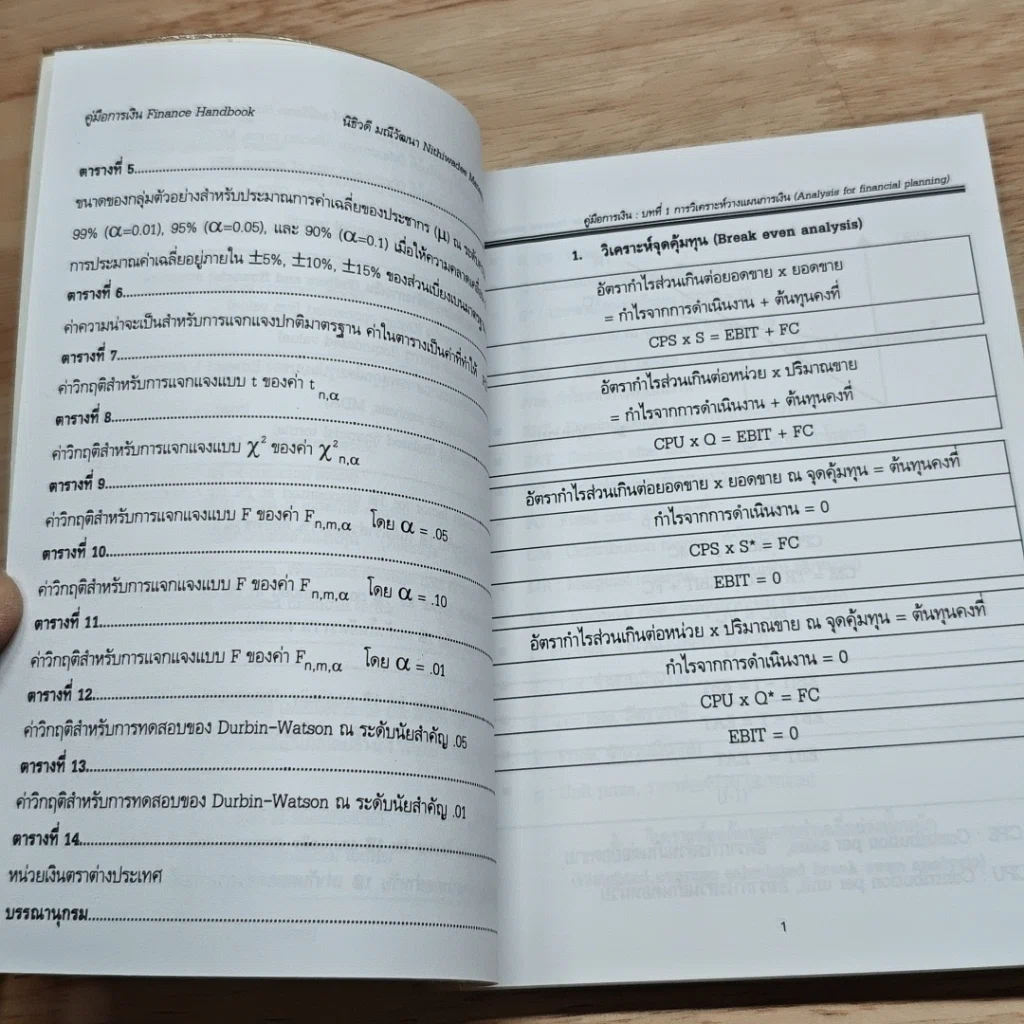 คู่มือการเงิน Finance Handbook
นิธิวดี มณีวัฒนา Nithiwadee
ตารางที่ 5
ขนาดของกลุ่มตัวอย่างสำหรับประมาณการค่าเฉลี่ยของประชากร (μ) ณ
99% (α=0.01), 95% (α=0.05), และ 90% (α=0.1) เมื่อให้ความคลาดเคลื่อน
การประมาณค่าเฉลี่ยอยู่ภายใน ±5%, ±10%, ±15% ของส่วนเบี่ยงเบนมาตรฐาน
ตารางที่ 6
ค่าความน่าจะเป็นสำหรับการแจกแจงปกติมาตรฐาน ค่าในตารางเป็นค่าที่ทำให้
ตารางที่ 7
ค่าวิกฤติสำหรับการแจกแจงแบบ t ของค่า t n,α
ตารางที่ 8
ค่าวิกฤติสำหรับการแจกแจงแบบ χ² ของค่า χ² n,α
ตารางที่ 9
ค่าวิกฤติสำหรับการแจกแจงแบบ F ของค่า F n,m,α โดย α = .05
ตารางที่ 10
ค่าวิกฤติสำหรับการแจกแจงแบบ F ของค่า F n,m,α โดย α = .10
ตารางที่ 11
ค่าวิกฤติสำหรับการแจกแจงแบบ F ของค่า F n,m,α โดย α = .01
ตารางที่ 12
ค่าวิกฤติสำหรับการทดสอบของ Durbin-Watson ณ ระดับนัยสำคัญ .05
ตารางที่ 13
ค่าวิกฤติสำหรับการทดสอบของ Durbin-Watson ณ ระดับนัยสำคัญ .01
ตารางที่ 14
หน่วยเงินตราต่างประเทศ
บรรณานุกรม
คู่มือการเงิน : บทที่ 1 การวิเคราะห์วางแผนการเงิน (Analysis for financial planning)
1. วิเคราะห์จุดคุ้มทุน (Break even analysis)
อัตรากำไรส่วนเกินต่อยอดขาย x ยอดขาย
= กำไรจากการดำเนินงาน + ต้นทุนคงที่
CPS x S = EBIT + FC
อัตรากำไรส่วนเกินต่อหน่วย x ปริมาณขาย
= กำไรจากการดำเนินงาน + ต้นทุนคงที่
CPU x Q = EBIT + FC
อัตรากำไรส่วนเกินต่อยอดขาย x ยอดขาย ณ จุดคุ้มทุน = ต้นทุนคงที่
กำไรจากการดำเนินงาน = 0
CPS x S* = FC
EBIT = 0
อัตรากำไรส่วนเกินต่อหน่วย x ปริมาณขาย ณ จุดคุ้มทุน = ต้นทุนคงที่
กำไรจากการดำเนินงาน = 0
CPU x Q* = FC
EBIT = 0
1